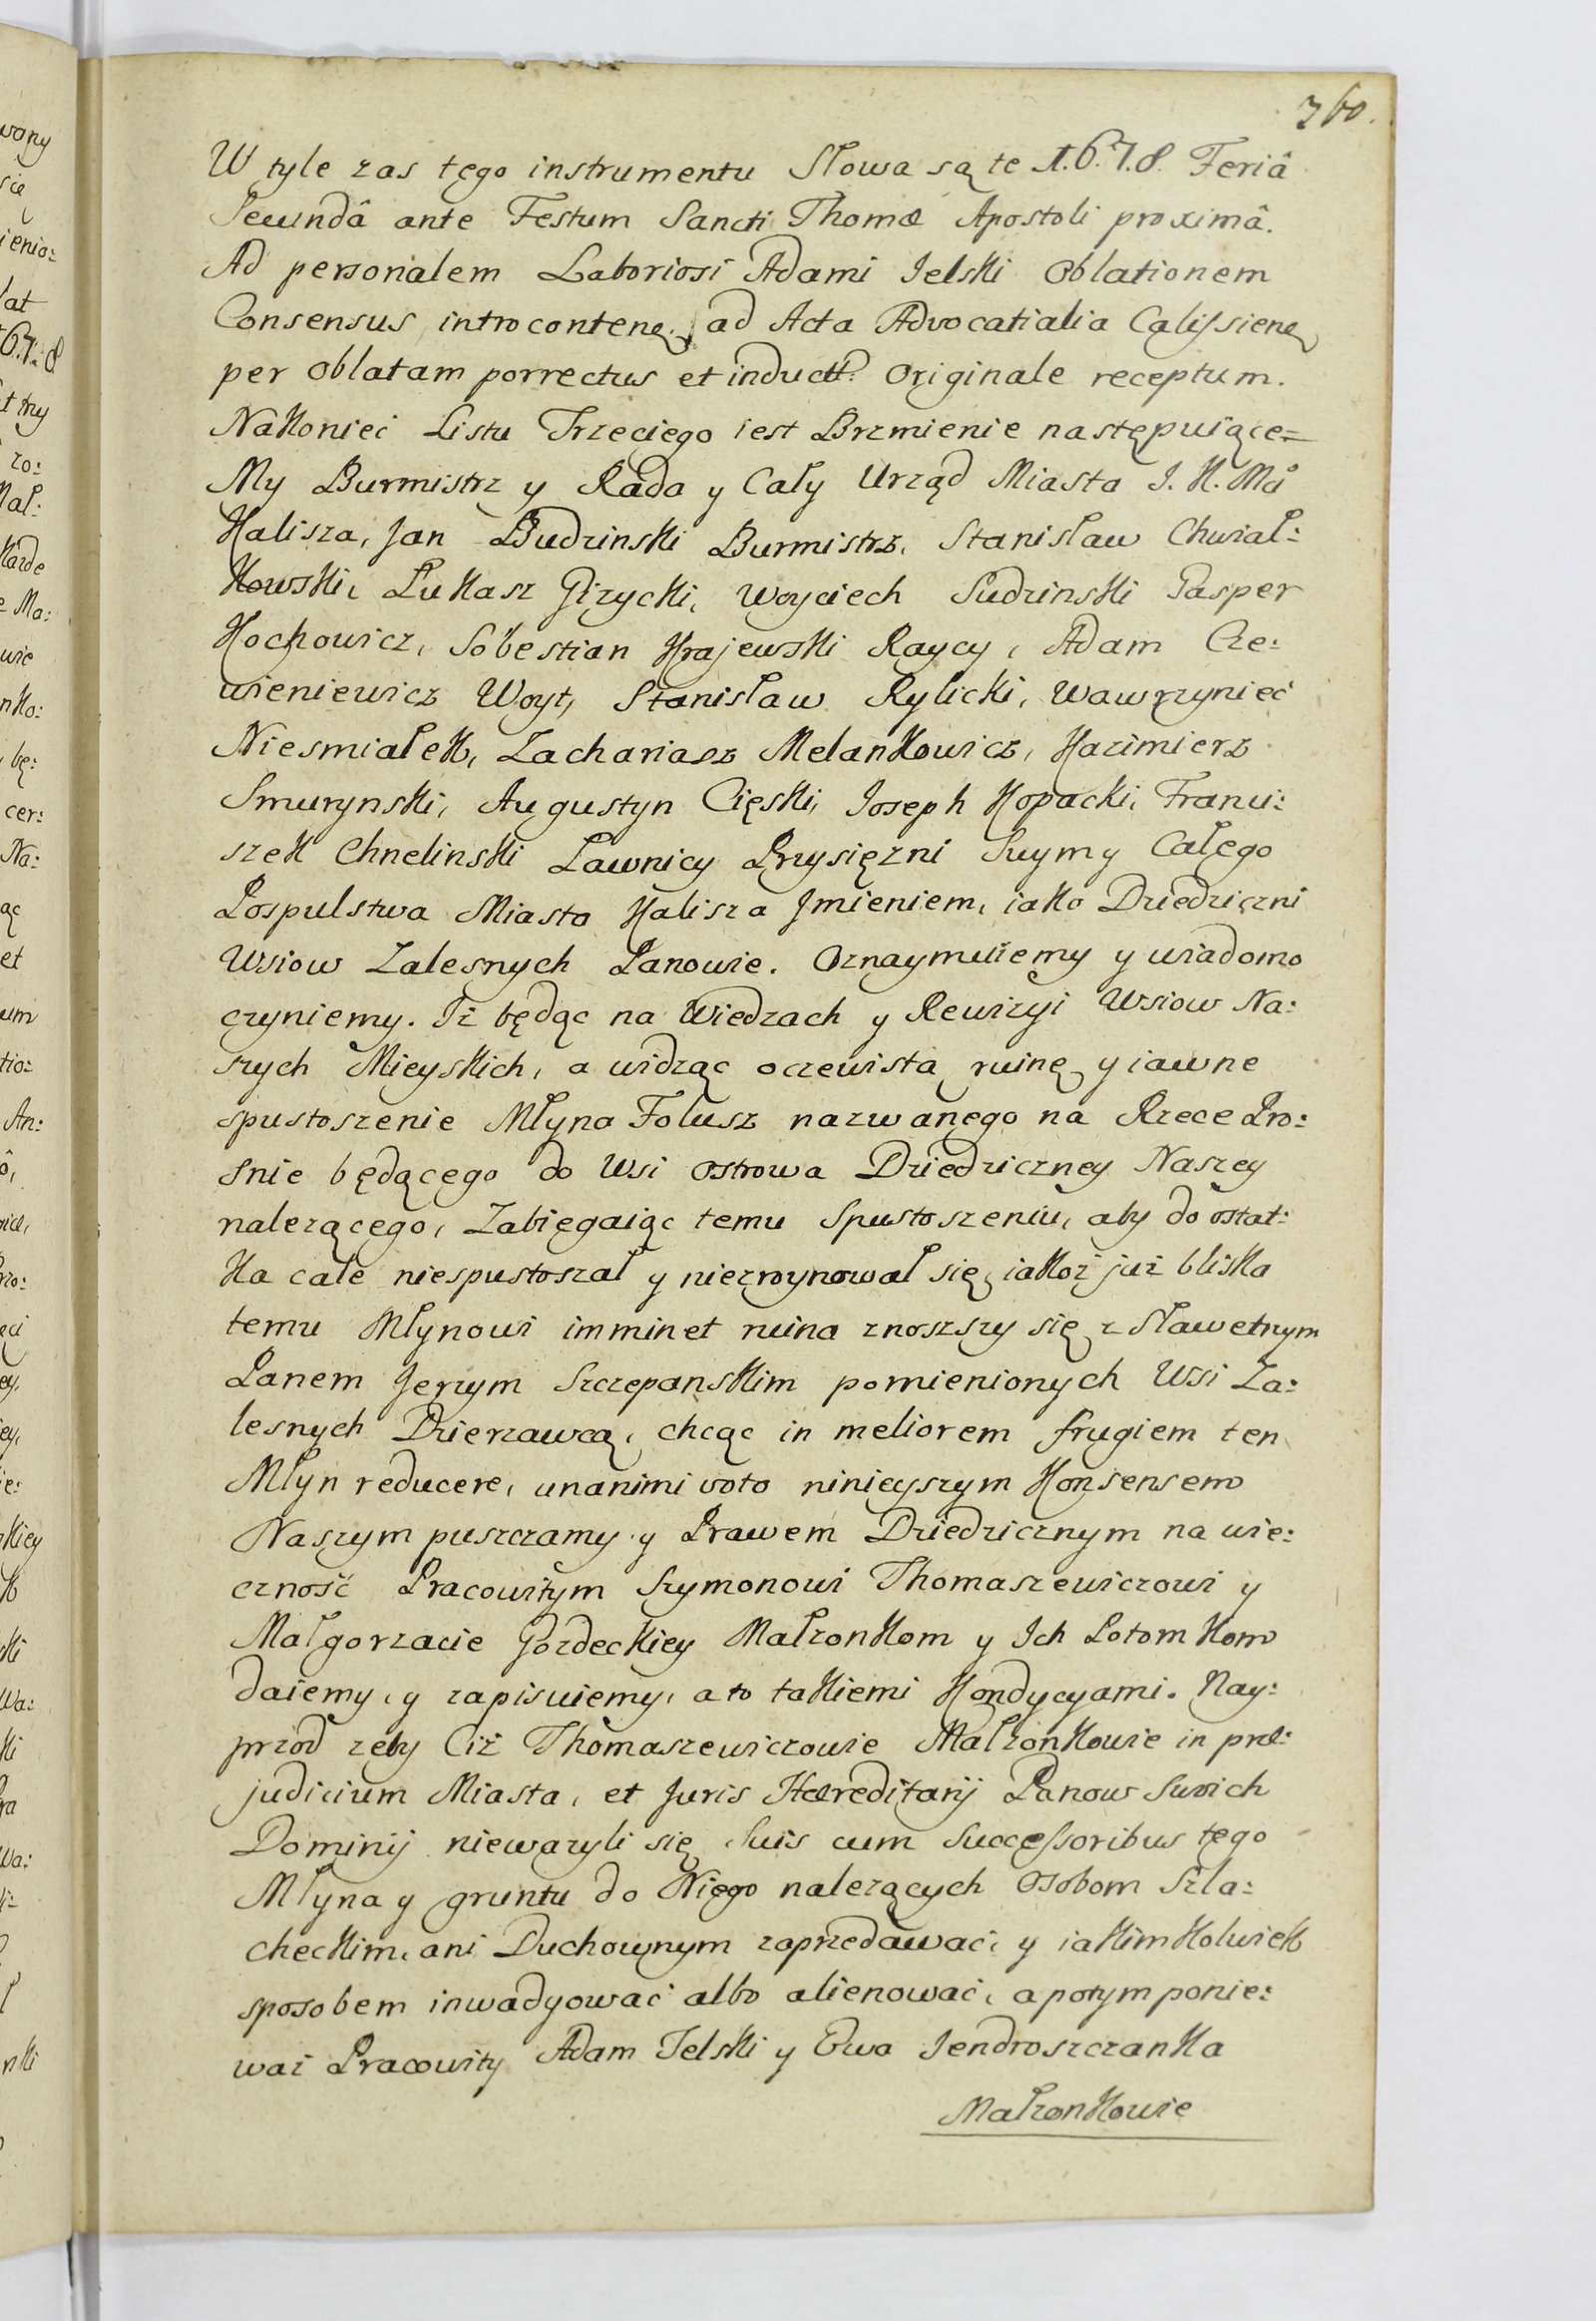 760.
W tyle zas tego instrumentu Słowa są te 1.6.7.8. Feriâ
Secundâ ante Festum Sancti Thomæ Apostoli proximâ.
Ad personalem Laboriosi Adami Jelski Oblationem
Consensus introconten. ad Acta Advocatialia Calissien
per Oblatam porrectus et induct. Originale receptum.
Nakoniec Listu Trzeciego iest Brzmienie następuiące=
My Burmistrz y Rada y Cały Urząd Miasta J. K. Mci
Kalisza, Jan Budzinski Burmistrz, Stanisław Chwiał:
kowski, Łukasz Giżycki, Woyciech Sudzinski Gasper
Kochowicz, Sobestian Krajewski Raycy, Adam Cze:
wieniewicz Woyt, Stanisław Rylicki, Wawrzyniec
Niesmiałek, Zachariasz Melankowicz, Kazimierz
Smurzynski, Augustyn Cięski, Joseph Kopacki, Franci:
szek Chnelinski Ławnicy Przysięzni Swym y Całego
Pospulstwa Miasta Kalisza Jmieniem, iako Dziedziczni
Wsiow Zalesnych Panowie. Oznaymuiemy y wiadomo
czyniemy. Iż będąc na Wiedzach y Rewizyi Wsiow Na:
szych Mieyskich, a widząc oczewista ruinę y iawne
spustoszenie Młyna Folusz nazwanego na Rzece Pro:
snie będącego do Wsi Ostrowa Dziedziczney Naszey
nalezącego, Zabiegaiąc temu Spustoszeniu, aby do ostat:
ka cale niespustoszał y niezrynował się, iakoż już bliska
temu Młynowi imminet ruina znoszszy się z Sławetnym
Panem Jerzym Szczepanskim pomienionych Wsi Za:
lesnych Dzierzawcą, chcąc in meliorem frugiem ten
Młyn reducere, unanimi voto ninieyszym Konsensem
Naszym puszczamy y Prawem Dziedzicznym na wie:
czność Pracowitym Szymonowi Thomaszewiczowi y
Małgorzacie Gozdeckiey Małzonkom y Ich Potomkom
daiemy, y zapisuiemy, a to takiemi Kondycyami. Nay:
przod zeby Ciż Thomaszewiczowie Małzonkowie in præ:
judicium Miasta, et Juris Hæreditarij Panow Swoich
Dominij niewazyli się Suis cum Successoribus tego
Młyna y gruntu do Niego nalezących Osobom Szla:
checkim, ani Duchownym zaprzedawać, y iakimkolwiek
sposobem inwadyować albo alienować, a potym ponie:
waż Pracowity Adam Jelski y Ewa Jendroszczanka
Małzonkowie